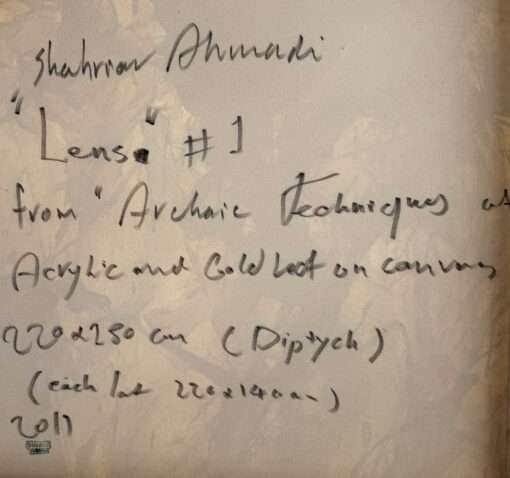 Shahriar Ahmadi
"Lens" #1
from "Archaic Techniques
Acrylic and Gold Leaf on canvas
220x280 cm (Diptych)
(each 220x140 cm)
2017